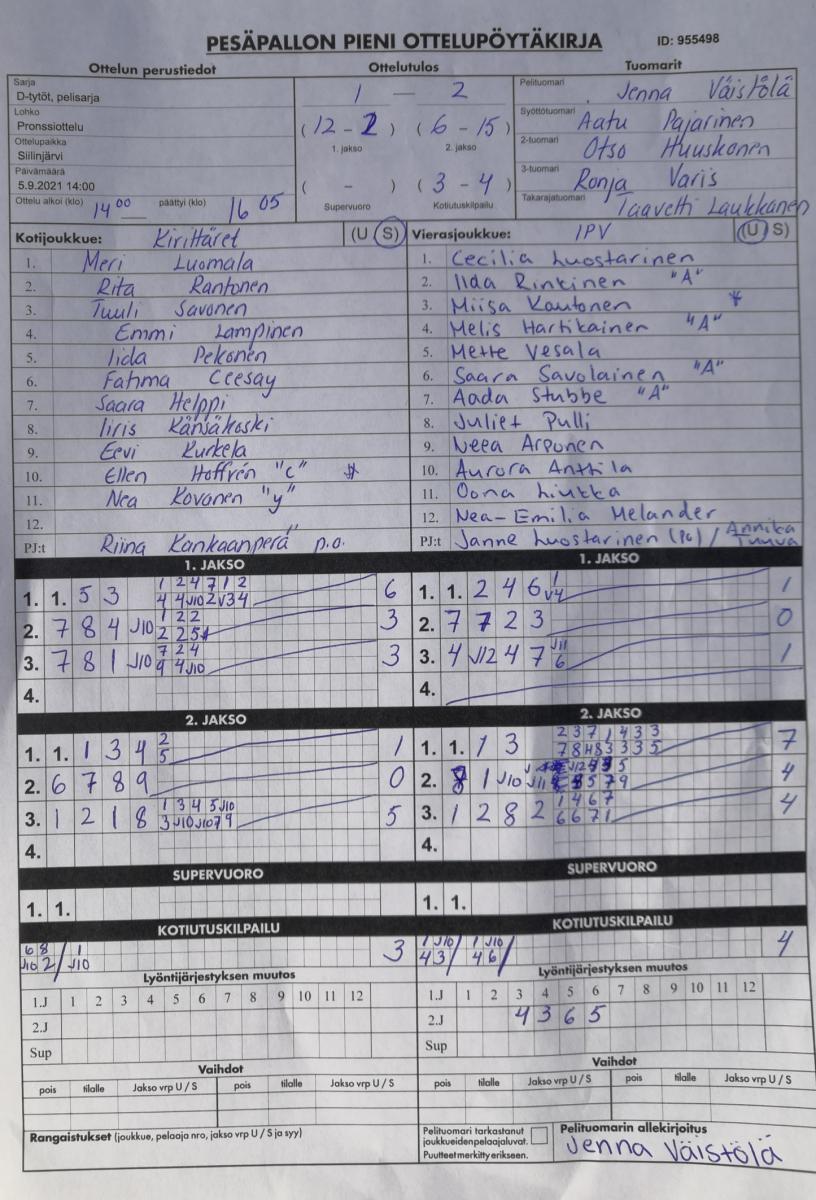 PESÄPALLON PIENI OTTELUPÖYTÄKIRJA ID: 955498
Ottelun perustiedot Ottelutulos Tuomarit
Sarja
D-tytöt, pelisarja
Lohko
Pronssiottelu
Ottelupaikka
Siilinjärvi
Päivämäärä
5.9.2021 14:00
Ottelu alkoi (klo) 14 00 päättyi (klo) 16 05
1 — 2
(12 - 2) (6 - 15)
1. jakso 2. jakso
( - ) (3 - 4)
Supervuoro Kotiutuskilpailu
Pelituomari Jenna Väistölä
Syöttötuomari Aatu Pajarinen
2-tuomari Otso Huuskonen
3-tuomari Ronja Varis
Takarajatuomari Taavetti Laukkanen
Kotijoukkue: Kirittäret (U S)
1. Meri Luomala
2. Rita Rantonen
3. Tuuli Savonen
4. Emmi Lampinen
5. Iida Pekonen
6. Fatima Ceesay
7. Saara Helppi
8. Iiris Känsäkoski
9. Eevi Kurkela
10. Ellen Hoffrén "C"
11. Nea Kovanen "y"
12.
PJ:t Riina Kankaanperä p.o.
Vierasjoukkue: IPV (U S)
1. Cecilia Luostarinen
2. Iida Rinkinen "A"
3. Miisa Kautonen
4. Melis Hartikainen "A"
5. Mette Vesala
6. Saara Savolainen "A"
7. Aada Stubbe "A"
8. Juliet Pulli
9. Neea Arponen
10. Aurora Anttila
11. Oona Liukka
12. Nea-Emilia Melander
PJ:t Janne Luostarinen (PG) / Annika Tuuva
1. JAKSO
1. 1. 5 3 1 2 4 7 1 2 6
4 4 J10 2 V3 4
2. 7 8 4 J10 1 2 2 3
2 2 5
3. 7 8 1 J10 7 2 4 3
9 4 J10
4.
1. JAKSO
1. 1. 2 4 6 1 1
V4
2. 7 7 2 3 0
3. 4 J12 4 7 J11 1
6
4.
2. JAKSO
1. 1. 1 3 4 2 1
5
2. 6 7 8 9 0
3. 1 2 1 8 1 3 4 5 J10 5
3 J10 J10 7 9
4.
2. JAKSO
1. 1. 1 3 2 3 7 1 4 3 3 7
7 8 4 8 3 3 3 5
2. 8 1 J10 J11 4
3. 1 2 8 2 1 4 6 7 4
6 6 7 1
4.
SUPERVUORO
1. 1.
SUPERVUORO
1. 1.
KOTIUTUSKILPAILU
6 8 / 1 3
J10 2 / J10
KOTIUTUSKILPAILU
1 J10 / 1 J10 / 4
4 3 / 4 6 /
Lyöntijärjestyksen muutos
1.J 1 2 3 4 5 6 7 8 9 10 11 12
2.J
Sup
Lyöntijärjestyksen muutos
1.J 1 2 3 4 5 6 7 8 9 10 11 12
2.J 4 3 6 5
Sup
Vaihdot
pois tilalle Jakso vrp U / S pois tilalle Jakso vrp U / S
Vaihdot
pois tilalle Jakso vrp U / S pois tilalle Jakso vrp U / S
Rangaistukset (joukkue, pelaaja nro, jakso vrp U / S ja syy)
Pelituomari tarkastanut
joukkueiden pelaajaluvat.
Puutteet merkitty erikseen.
Pelituomarin allekirjoitus
Jenna Väistölä